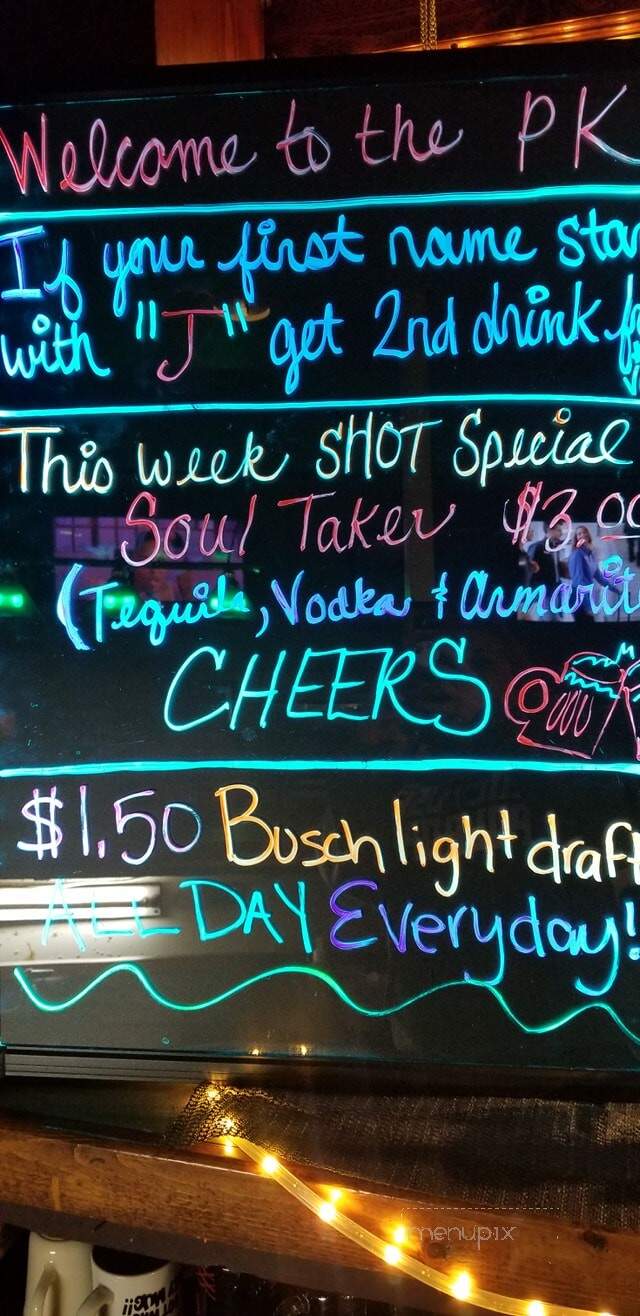 Welcome to the PK
If your first name star
with "J" get 2nd drink
This week SHOT Special
Soul Taker $3.00
(Tequila, Vodka & Armarit
CHEERS
$1.50 Busch light draft
ALL DAY Everyday!
menupix